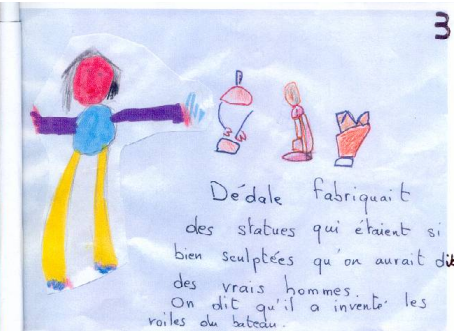 3
Dédale fabriquait
des statues qui étaient si
bien sculptées qu'on aurait dit
des vrais hommes.
On dit qu'il a inventé les
voiles du bateau.